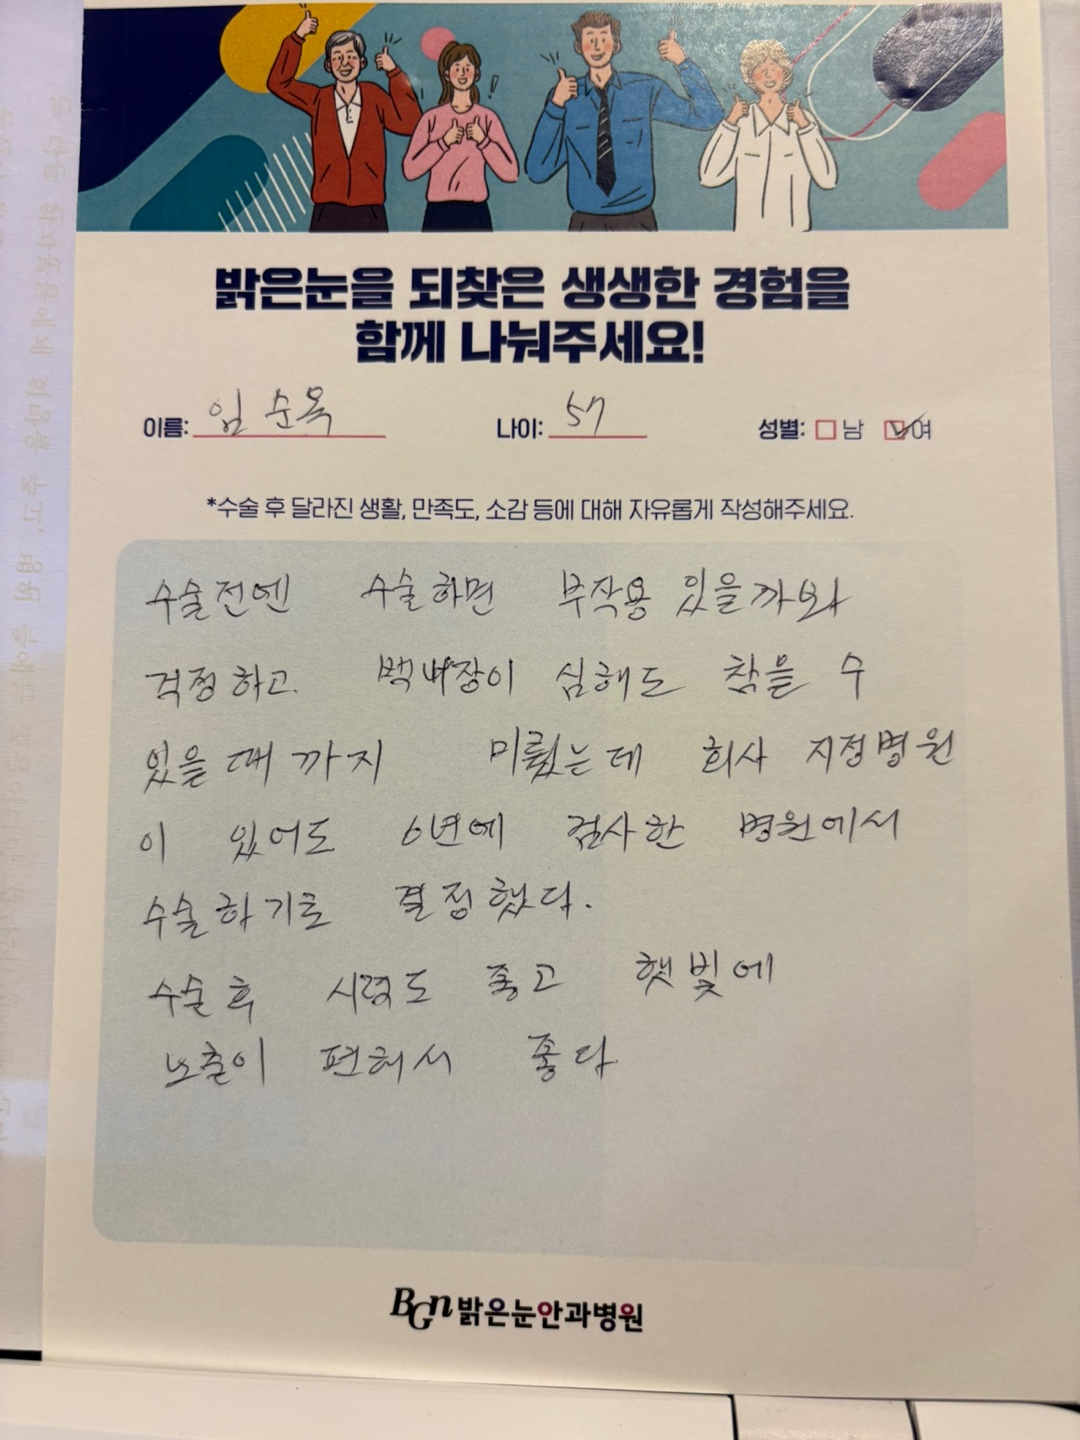 밝은눈을 되찾은 생생한 경험을
함께 나눠주세요!
이름: 임순옥 나이: 57 성별: 남 여
*수술 후 달라진 생활, 만족도, 소감 등에 대해 자유롭게 작성해주세요.
수술전엔 수술하면 부작용 있을까봐
걱정하고. 백내장이 심해도 참을 수
있을때까지 미뤘는데 회사 지정병원
이 있어도 6년에 검사한 병원에서
수술하기로 결정했다.
수술후 시력도 좋고 햇빛에
노출이 편해서 좋다
BGn밝은눈안과병원